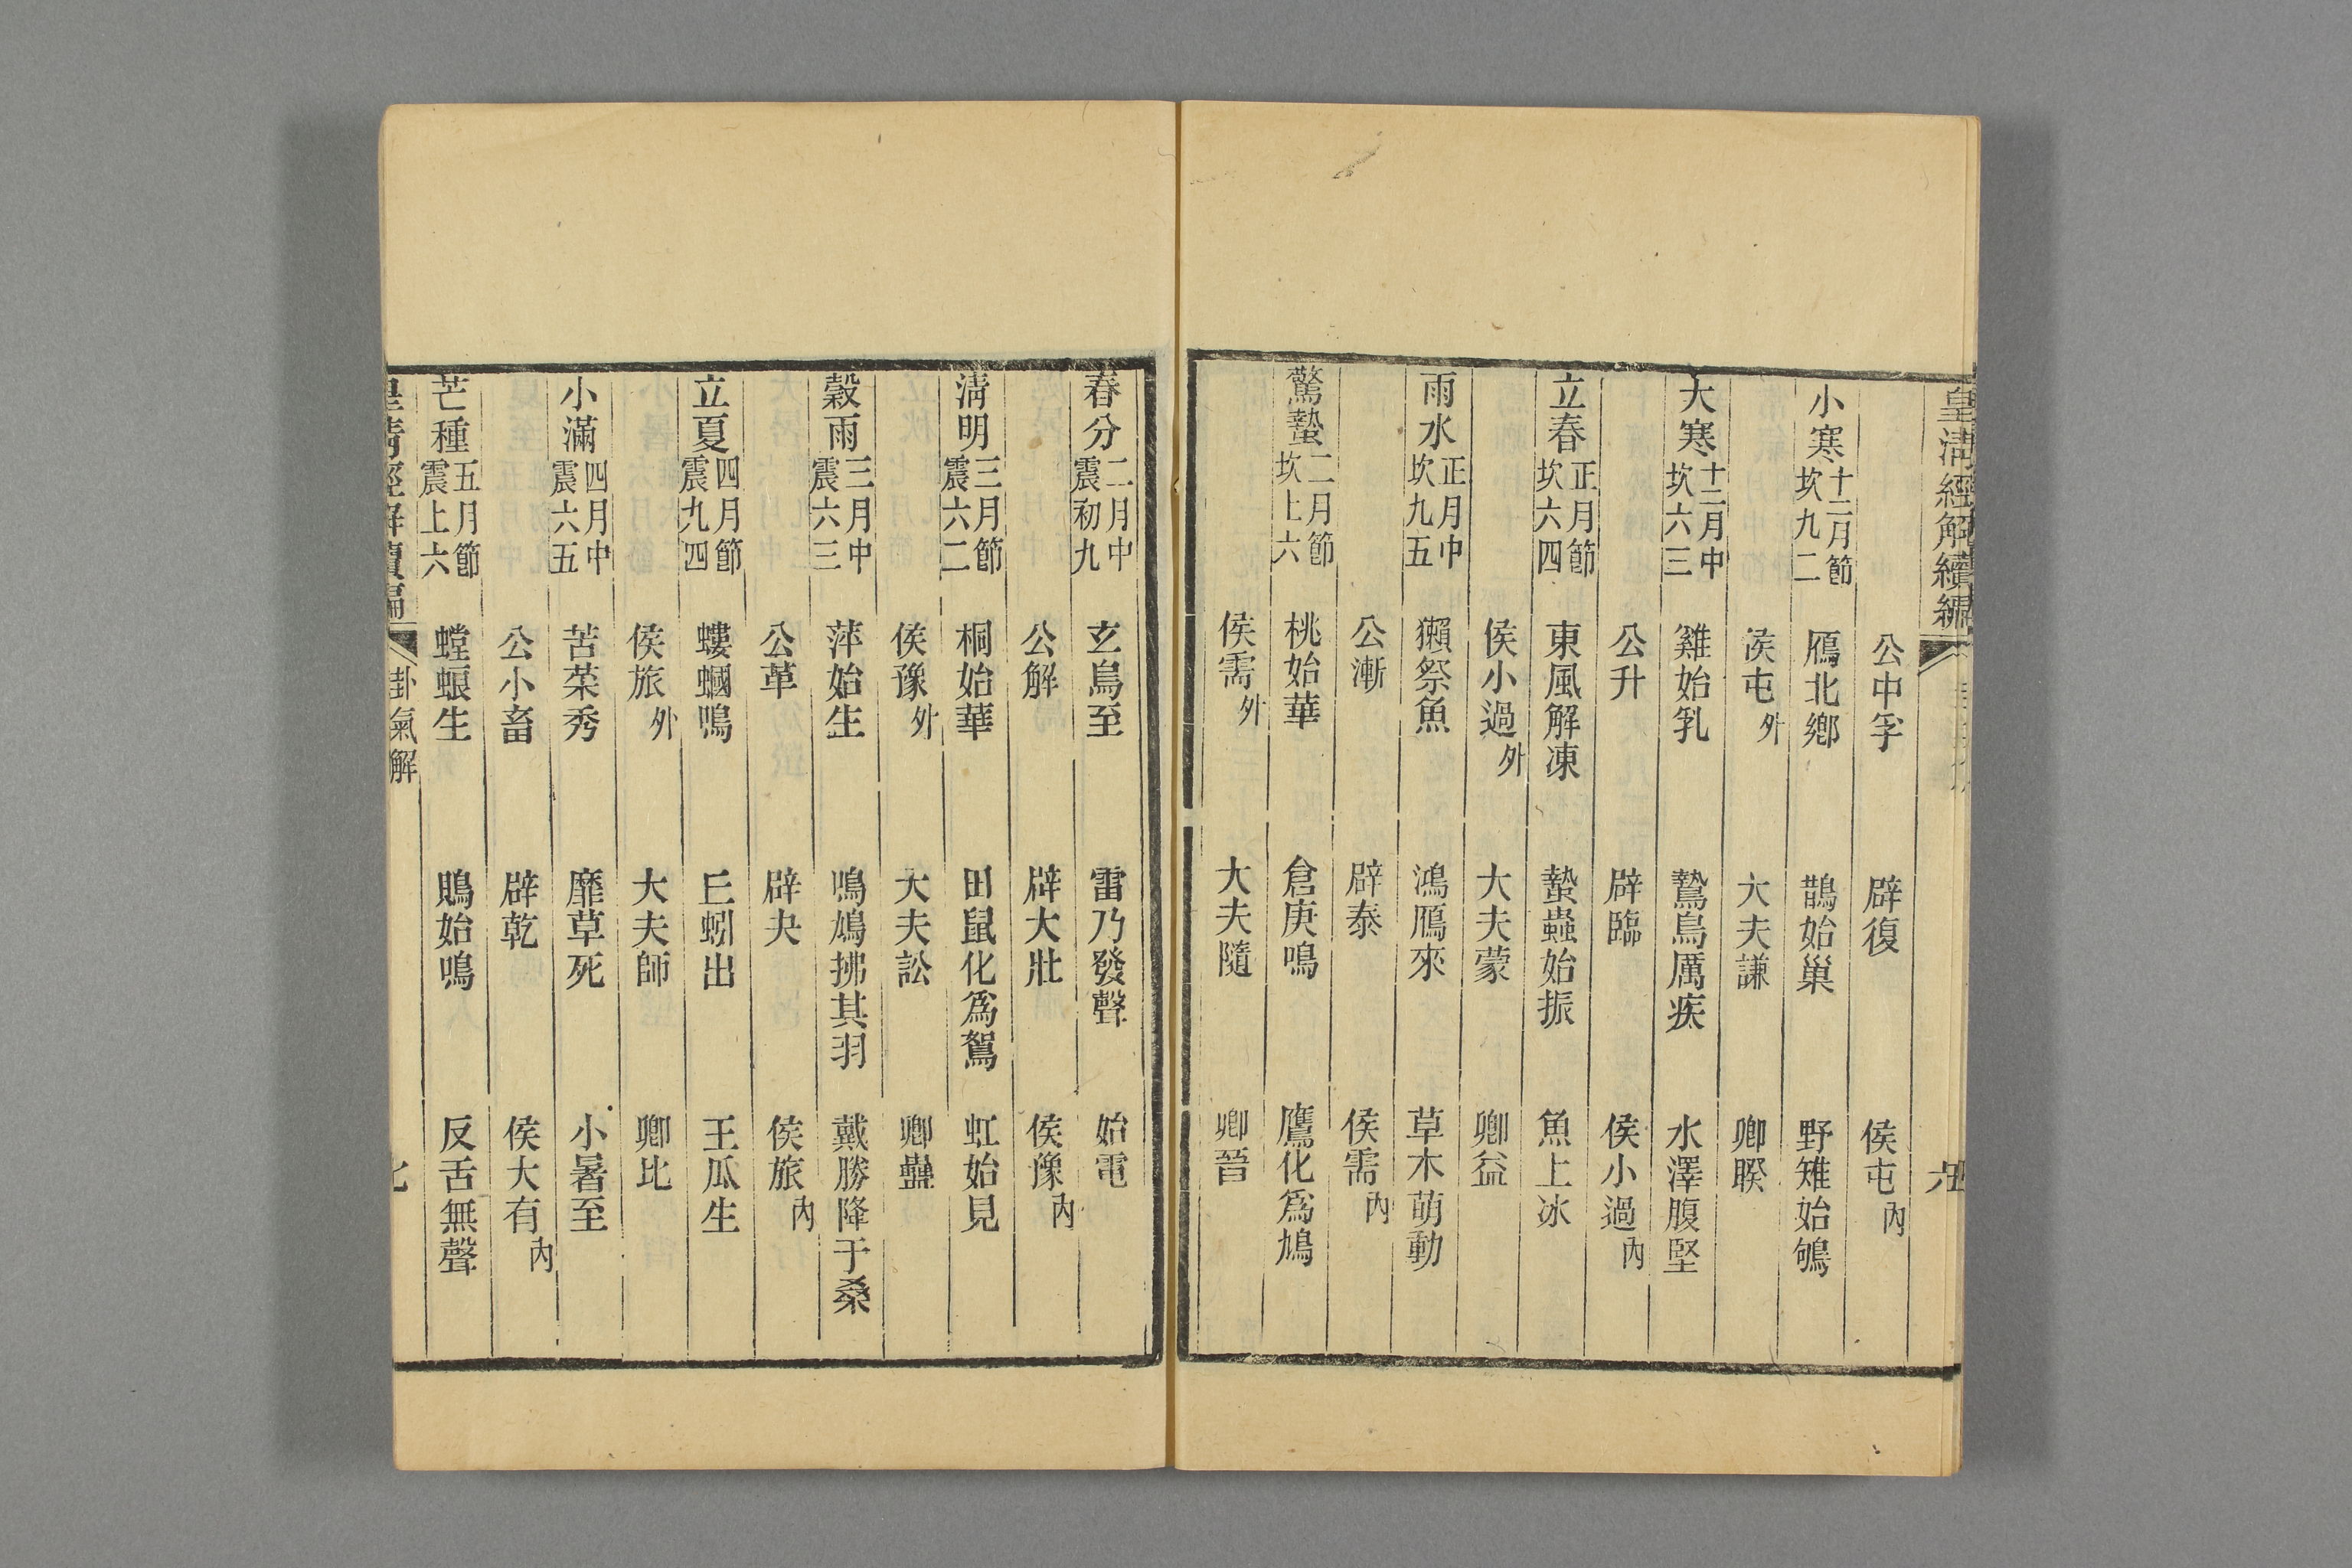 皇清經解續編
公中孚 辟復 侯屯內
小寒十二月節坎九二 鴈北鄉 鵲始巢 野雉始鴝
侯屯外 大夫謙 卿睽
大寒十二月中坎六三 雞始乳 鷙鳥厲疾 水澤腹堅
公升 辟臨 侯小過內
立春正月節坎六四 東風解凍 蟄蟲始振 魚上冰
侯小過外 大夫蒙 卿益
雨水正月中坎九五 獺祭魚 鴻鴈來 草木萌動
公漸 辟泰 侯需內
驚蟄二月節坎上六 桃始華 倉庚鳴 鷹化爲鳩
侯需外 大夫隨 卿晉
春分二月中震初九 玄鳥至 雷乃發聲 始電
公解 辟大壯 侯豫內
清明三月節震六二 桐始華 田鼠化爲鴽 虹始見
侯豫外 大夫訟 卿蠱
穀雨三月中震六三 萍始生 鳴鳩拂其羽 戴勝降于桑
公革 辟夬 侯旅內
立夏四月節震九四 螻蟈鳴 丘蚓出 王瓜生
侯旅外 大夫師 卿比
小滿四月中震六五 苦菜秀 靡草死 小暑至
公小畜 辟乾 侯大有內
芒種五月節震上六 螳蜋生 鵙始鳴 反舌無聲
皇清經解續編 卦氣解